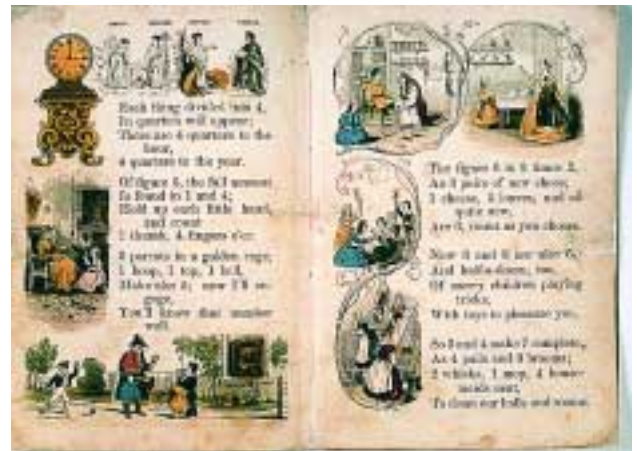 Each thing divided into 4,
In quarters will appear;
There are 4 quarters to the
hour,
4 quarters to the year.
Of figure 5, the full amount
Is found in 1 and 4;
Hold up each little hand,
and count
1 thumb, 4 fingers o'er.
2 parrots in a golden cage,
1 hoop, 1 top, 1 ball,
Make also 5; now I'll en-
gage,
You'll know that number
well.
The figure 6 is 3 times 2,
As 3 pairs of new shoes;
1 cheese, 5 loaves, and all
quite new,
Are 6, count as you choose.
Now 3 and 3 are also 6,
And half-a-dozen, too,
Of merry children playing
tricks,
With toys to pleasure you.
So 3 and 4 make 7 complete,
As 4 pails and 3 brooms;
2 whisks, 1 mop, 4 house-
maids neat,
To clean our halls and rooms.